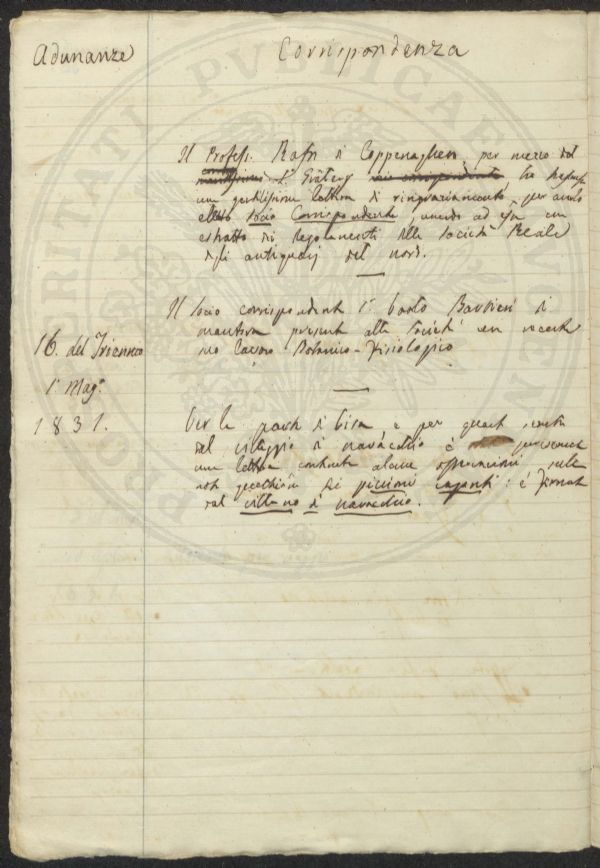 Adunanze
Corrispondenza
Il Profess. Rafn di Coppenaghen, per mezzo del
Sr. Gräberg ha
una gentilissima lettera di ringraziamento, per averlo
eletto Socio Corrispondente, unendo ad essa un
estratto di Regolamenti della Società Reale
degli antiquarj del nord.
Il Socio corrispondente Sr. Paolo Barbieri di
Mantova presenta alla Società un recente
suo lavoro Botanico-Fisiologico
16. del Triennio
1° Mag.
1831.
Per la parte di Pisa, e per quanto
dal villaggio di navacchio è pervenuta
una lettera contenente alcune osservazioni sulle
note dei piccioni : è firmata
dal villano di navacchio.
PUBLICAE